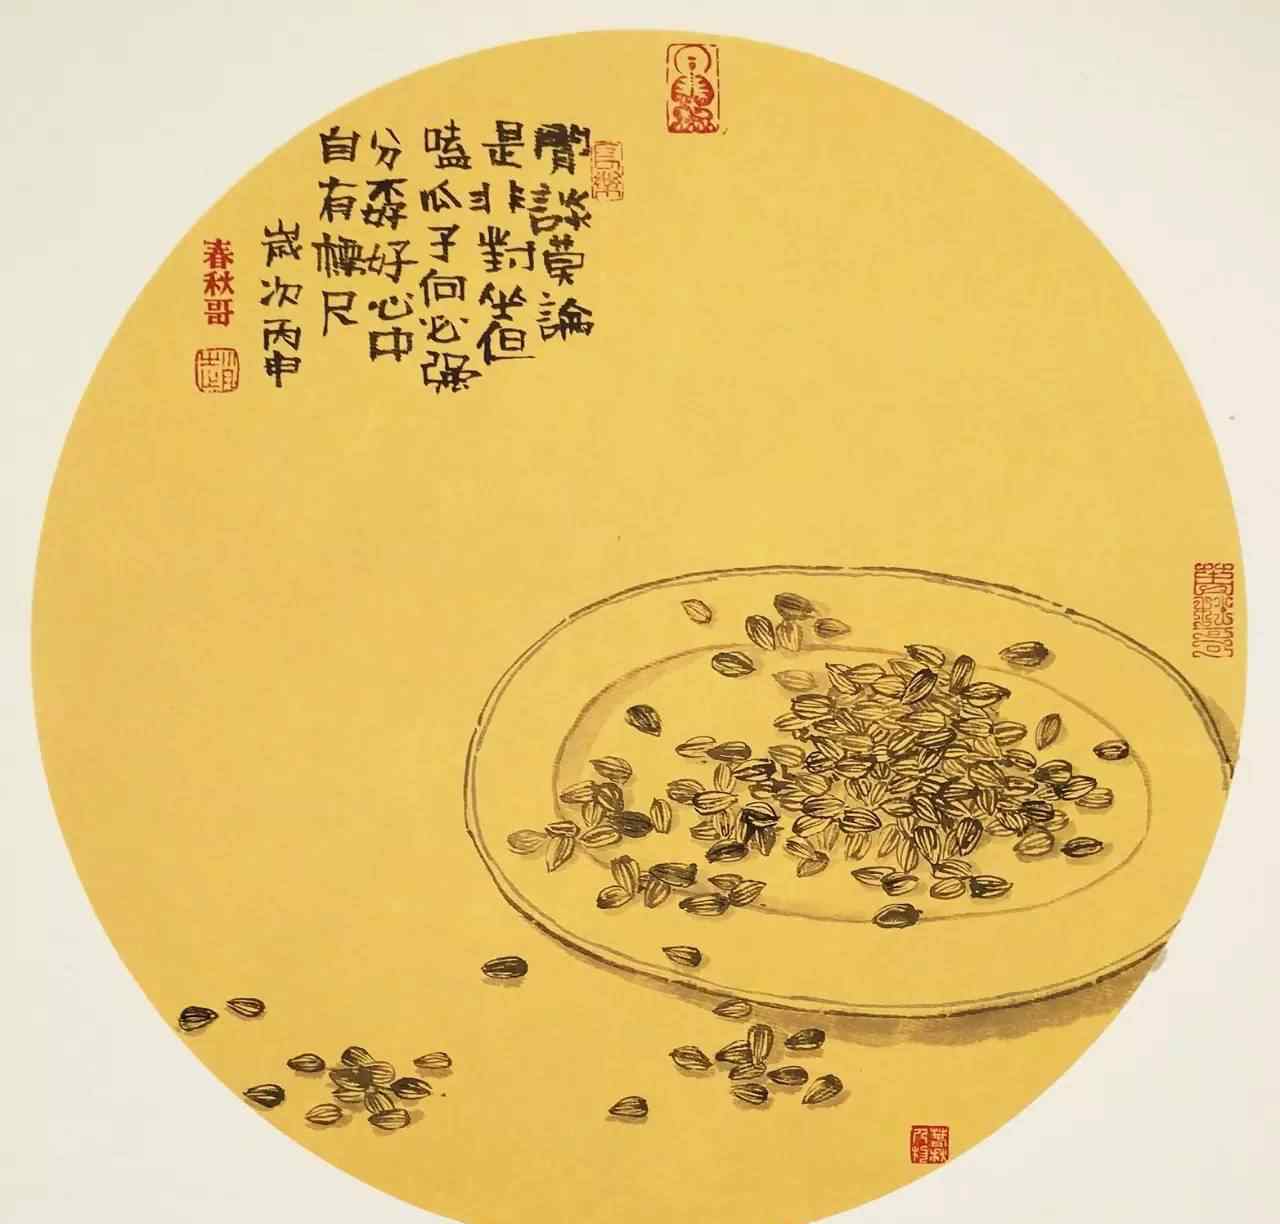 閒談莫論
是非對坐但
嗑瓜子何必强
分孬好心中
自有標尺
歲次丙申
春秋哥